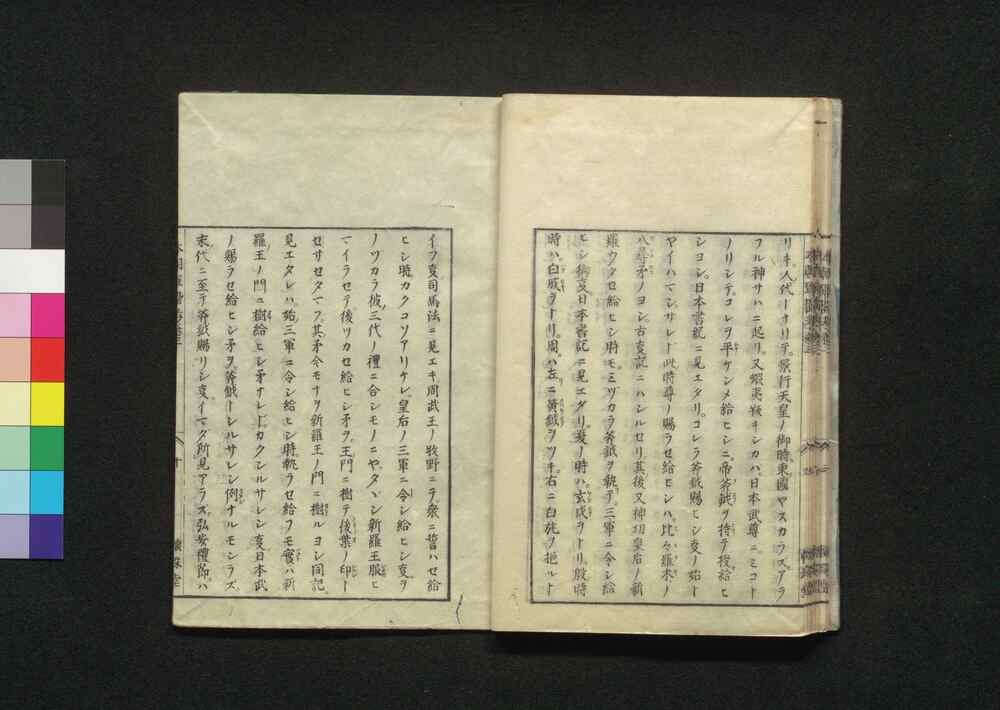 リキ人代トナリテ景行天皇ノ御時東國ヤスカラズアラ
フル神サハニ起リ又蝦夷叛キシカハ日本武尊ニミコト
ノリシテコレヲ平ケシメ給ヒシニ帝斧鉞ヲ持テ授給ヒ
シヨシ日本書紀ニ見エタリコレラ斧鉞賜ヒシ変ノ始ト
ヤイハマシサレド此時尊ノ賜ラセ給ヒシハ比々羅木ノ
八尋矛ノヨシ古変記ニハシルセリ其後又神功皇后ノ新
羅ウタセ給ヒシ時モミヅカラ斧鉞ヲ執テ三軍ニ令シ給
ヒシ変日本書記ニ見エタリ夏ノ時ハ玄戉ヲトリ殷時
時ハ白戚ヲトリ周ハ左ニ黄鉞ヲツキ右ニ白旄ヲ把ルト
イフ変司馬法ニ見エキ周武王ノ牧野ニテ衆ニ誓ハセ給
ヒシ時カクコソアリケレ皇后ノ三軍ニ令シ給ヒシ変ヲ
ノヅカラ彼三代ノ禮ニ合シモノニヤタヾシ新羅王服ヒ
マイラセテ後ツカセ給ヒシ矛ヲ王門ニ樹テ後葉ノ印ト
セサセタマフ其矛今モナヲ新羅王ノ門ニ樹ルヨシ同記
見エタレハ始三軍ニ令シ給ヒシ時執ラセ給フモ實ハ新
羅王ノ門ニ樹給ヒシ矛ナレドカクシルサレシ変日本武
ノ賜ラセ給ヒシ矛ヲ斧鉞トシルサレシ例ナルモシラズ
末代ニ至テ斧鉞賜リシ変イマダ所見アラズ弘安禮節ハ